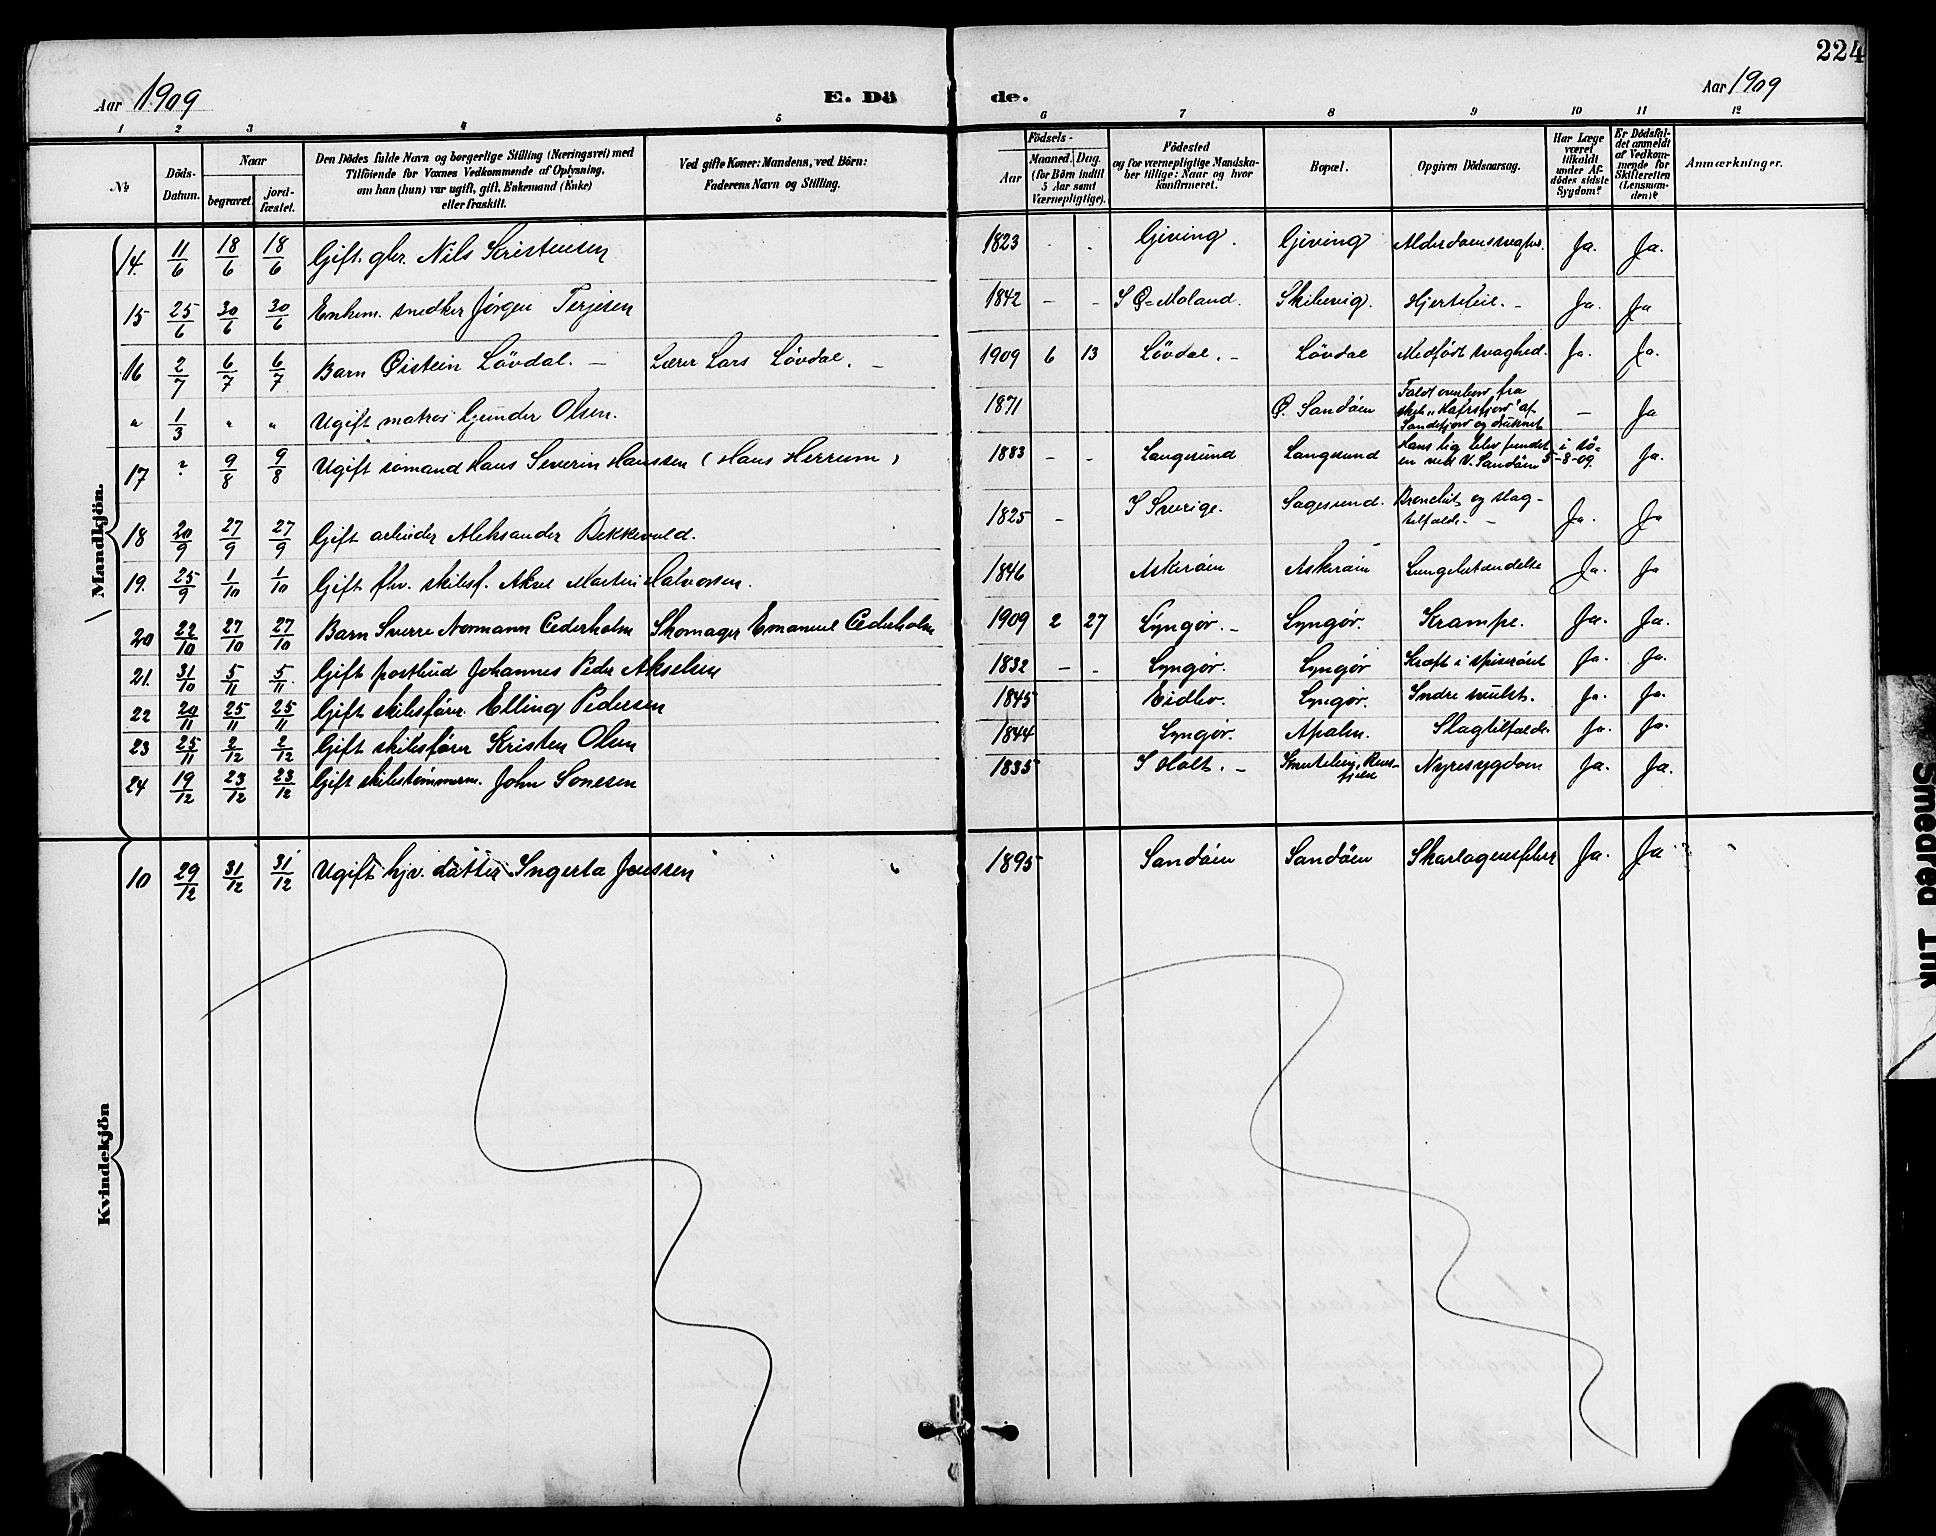 224
Aar 1909
E. Dö
de.
Aar 1909
1 2 3 4 5 6 7 8 9 10 11 12
No
Döds-Datum.
Naar
begravet.
jord-fæstet.
Den Dödes fulde Navn og borgerlige Stilling (Næringsvei) med
Tilföiende for Voxnes Vedkommende af Oplysning,
om han (hun) var ugift, gift, Enkemand (Enke)
eller fraskilt.
Ved gifte Koner: Mandens, ved Börn:
Faderens Navn og Stilling.
Födsels-
Aar
Maaned. Dag.
(for Börn indtil
5 Aar samt
Værnepligtige).
Födested
og for værnepligtige Mandska-
ber tillige: Naar og hvor
konfirmeret.
Bopæl.
Opgiven Dödsaarsag.
Har Læge
været
tilkaldt
under Af-
dödes sidste
Sygdom?
Er Dödsfal-
det anmeldt
af Vedkom-
mende for
Skifteretten
(Lensman-
den)?
Anmærkninger.
Mandkjön.
14. 11/6 18/6 18/6 Gift. gbr. Nils Kristensen 1823 - - Giving. Giving Ja. Ja.
15 25/6 30/6 30/6 Enkem. snedker Jørgen Terjesen 1842 - - I Ø-Moland. Skibvig. Hjertefeil. - Ja. Ja
16 2/7 6/7 6/7 Barn Øistein Lövdal. - Lærer Lars Lövdal. - 1909 6 13 Lövdal. - Lövdal Medfödt svaghed. Ja. Ja.
" 1/3 " " Ugift matros Gjunder Olsen. 1871 Ø. Sandöen Faldt overbord fra
skib "Hafrsfjord" af
Sandefjord og druknet - Ja
17 ? 9/8 9/8 Ugift sömand Hans Severin Hanssen (Hans Herrum) 1883 - - Langesund Langesund Hans lig blev fundet i sö-
en ved V. Sandöen 5-8-09. Ja.
18 20/9 27/9 27/9 Gift arbeider Aleksander Bekkevold. 1825 - I Sverige. Sagesund. Bronchit og slag-
tilfælde. - Ja. Ja
19. 25/9 1/10 1/10 Gift fhv. skibsf. Aksel Martin Halvorsen. 1846 Askeröen Askeröen Lungebetændelse Ja. Ja
20 22/10 27/10 27/10 Barn Sverre Normann Cederholm Skomager Emanuel Cederholm 1909 2 27 Lyngør. - Lyngør. Krampe. Ja. Ja.
21. 31/10 5/11 5/11. Gift postbud Johannes Peder Akselsen 1832 - - Lyngør. Lyngør Kræft i spiseröret Ja. Ja.
22 20/11 25/11 25/11 Gift skibsförer Elling Pedersen 1845 Eidbo. Lyngør. Indre svulst. Ja. Ja.
23 25/11 2/12 2/12 Gift skibsförer Kristen Olsen 1844 Lyngør. Apalen. Slagtilfælde. Ja. Ja.
24 19/12 23/12 23/12 Gift skibstömmerm. John Sonesen 1835 I Holt. - Nyresygdom Ja. Ja.
Kvindekjön
10 29/12 31/12 31/12 Ugift hjv. datter Ingerta Jenssen 1895 Sandöen Sandöen Skarlagensfeber Ja. Ja
Smeared Ink